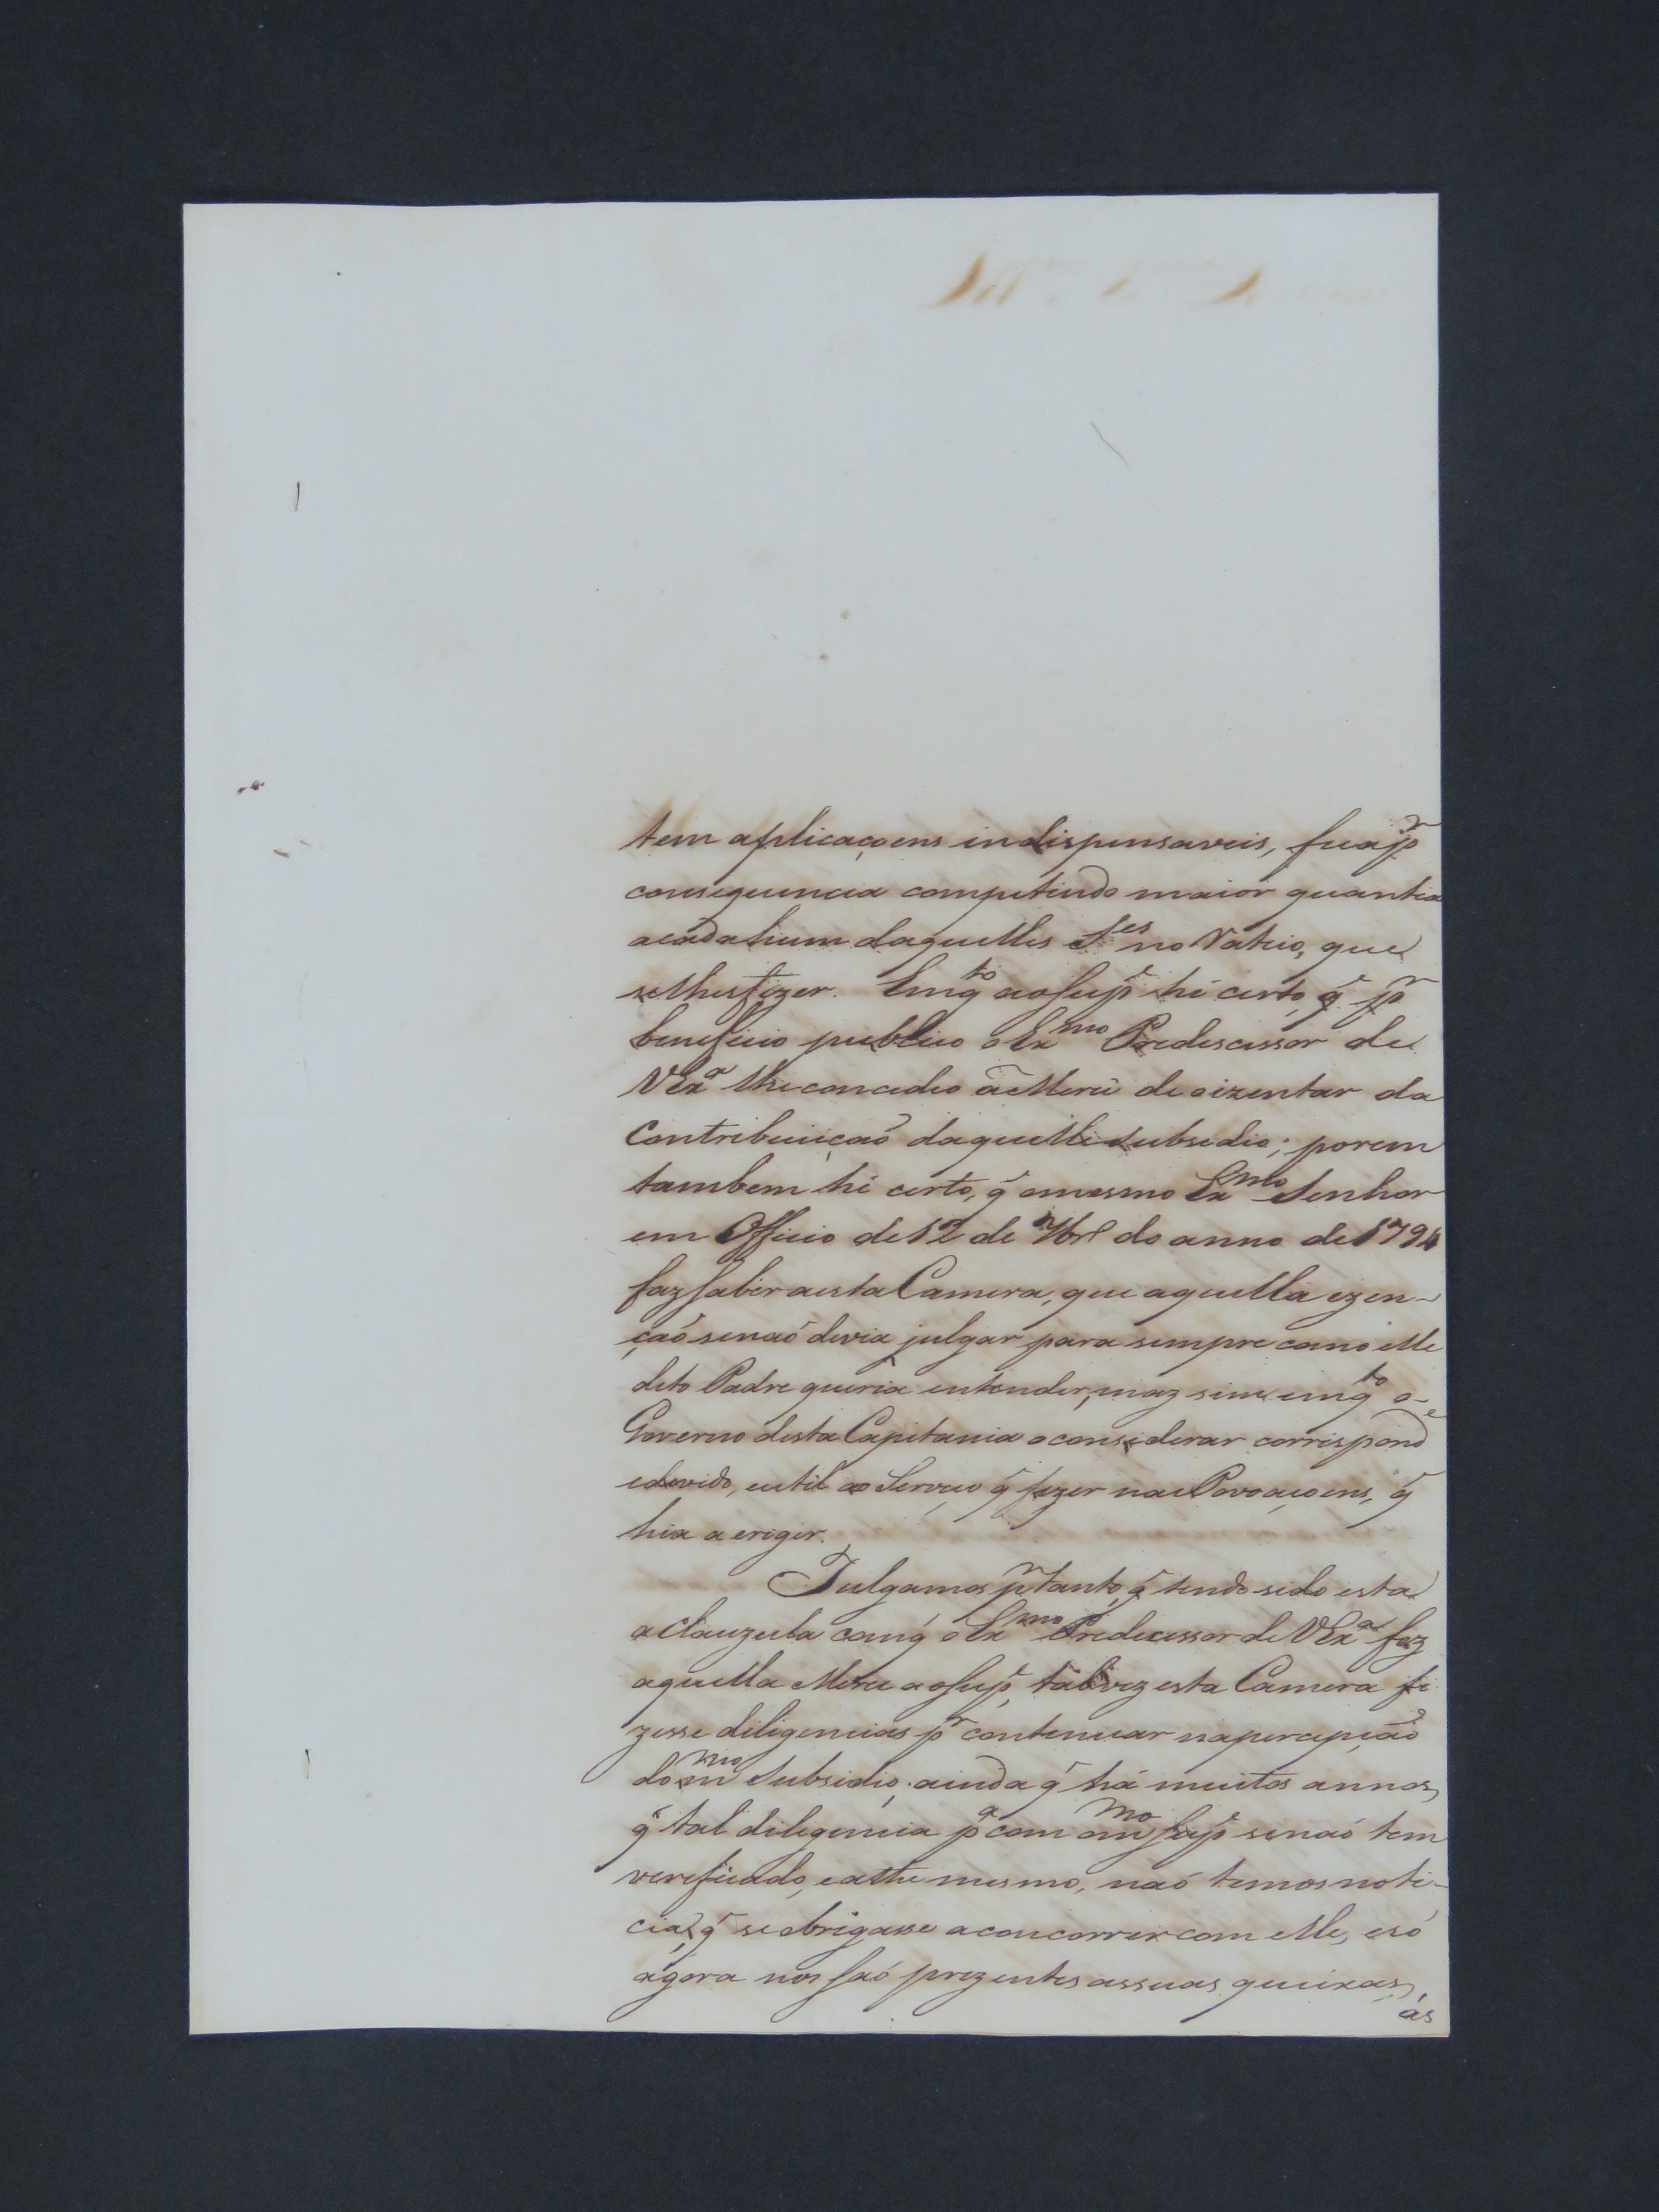 tem aplicaçoens indispensaveis, fica p.r
consequencia competindo maior quantia
acadahum daquelles S.res no Rateio, que
selhesfizer. Emq.to aoSup.e hé certo, q̃ p.r
beneficio publico oEx.mo Predecessor de
VEx.a lhe concedeo aMercê de oizentar da
Contribuiçaõ daquelle Subsidio; porem
tambem hé certo, q̃ omesmo Ex.mo Senhor
em Officio de 12 de 9br.o do anno de 1794
fazSaber aestaCamera, que aquella izen-
çaõ senaõ devia julgar para sempre como elle
dito Padre queria entender, maz sim emq.to o
Governo destaCapitania oconsiderar correspond.e
edevido, eutil ao Serviço q̃ fizer nas Povoaçoens, q̃
hia a erigir.
Julgamos p.r tanto, q̃ tendo sido esta
a clauzula comq̃ oEx.mo Predecessor de VEx.a fez
aquella Merce aoSup.e, talvez esta Camera fi
zesse diligencias p.r continuar napercepçaõ
dom.mo Subsidio; ainda q̃ há muitos annos,
q̃ tal diligencia p.a com om.mo Sup.e senaõ tem
verificado, eathe mesmo, naõ temos noti-
cia, q̃ se obrigasse aconcorrer com elle, esó
agora nos saõ prezentes assuas queixas,
ás